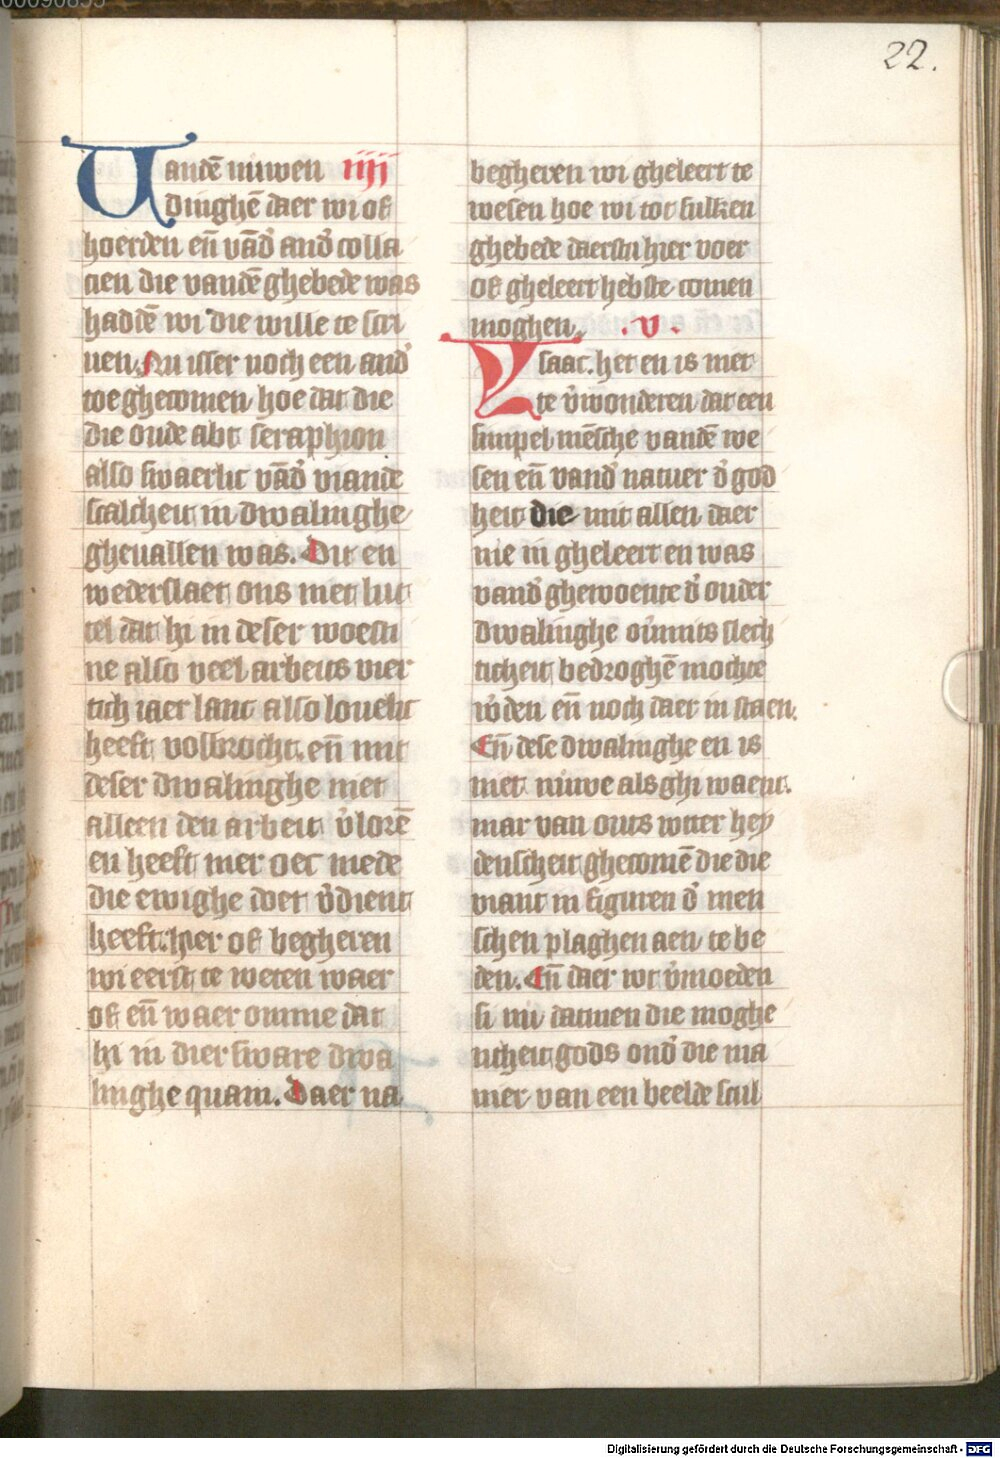 22.
Vandē nuwen iiij
dinghē daer wi of
hoerden eñ vād' and' colla
cien die vandē ghebede was
haddē wi die wille te scri
uen. Nu isser noch een and'
toe ghecomen hoe dat die
die oude abt seraphion
also swaerlic vād' viande
scalcheit in dwalinghe
gheuallen was. Dit en
wederslaet ons niet lut
tel dat hi in deser woesti
ne also veel arbeits vier
tich iaer lanc also louelic
heeft volbrocht. eñ mit
deser dwalinghe niet
alleen den arbeit v'lorē
en heeft mer oec mede
die ewighe doet v'dient
heeft. hier of begheren
wi eerst te weten waer
of eñ waer omme dat
hi in dier sware dwa
linghe quam. Daer na
begheren wi gheleert te
wesen hoe wi tot sulken
ghebede daerstu hier voer
of gheleert hebste comen
moghen. .v.
Ysaac. het en is niet
te v'wonderen dat een
simpel mēsche vandē we
sen eñ vand' natuer d' god
heit die mit allen daer
nie in gheleert en was
vand' ghewoente d' ouder
dwalinghe ou'mits slech
ticheit bedroghē mochte
w'den eñ noch daer in staen.
Eñ dese dwalinghe en is
niet niuwe als ghi waent.
mar van outs wter hey
denscheit ghecomē die die
viant in figuren d' men
schen plaghen aen te be
den. Eñ daer wt v'moeden
si nu datmen die moghe
nicheit gods ond' die ma
nier van een beelde scul
Digitalisierung gefördert durch die Deutsche Forschungsgemeinschaft - DFG